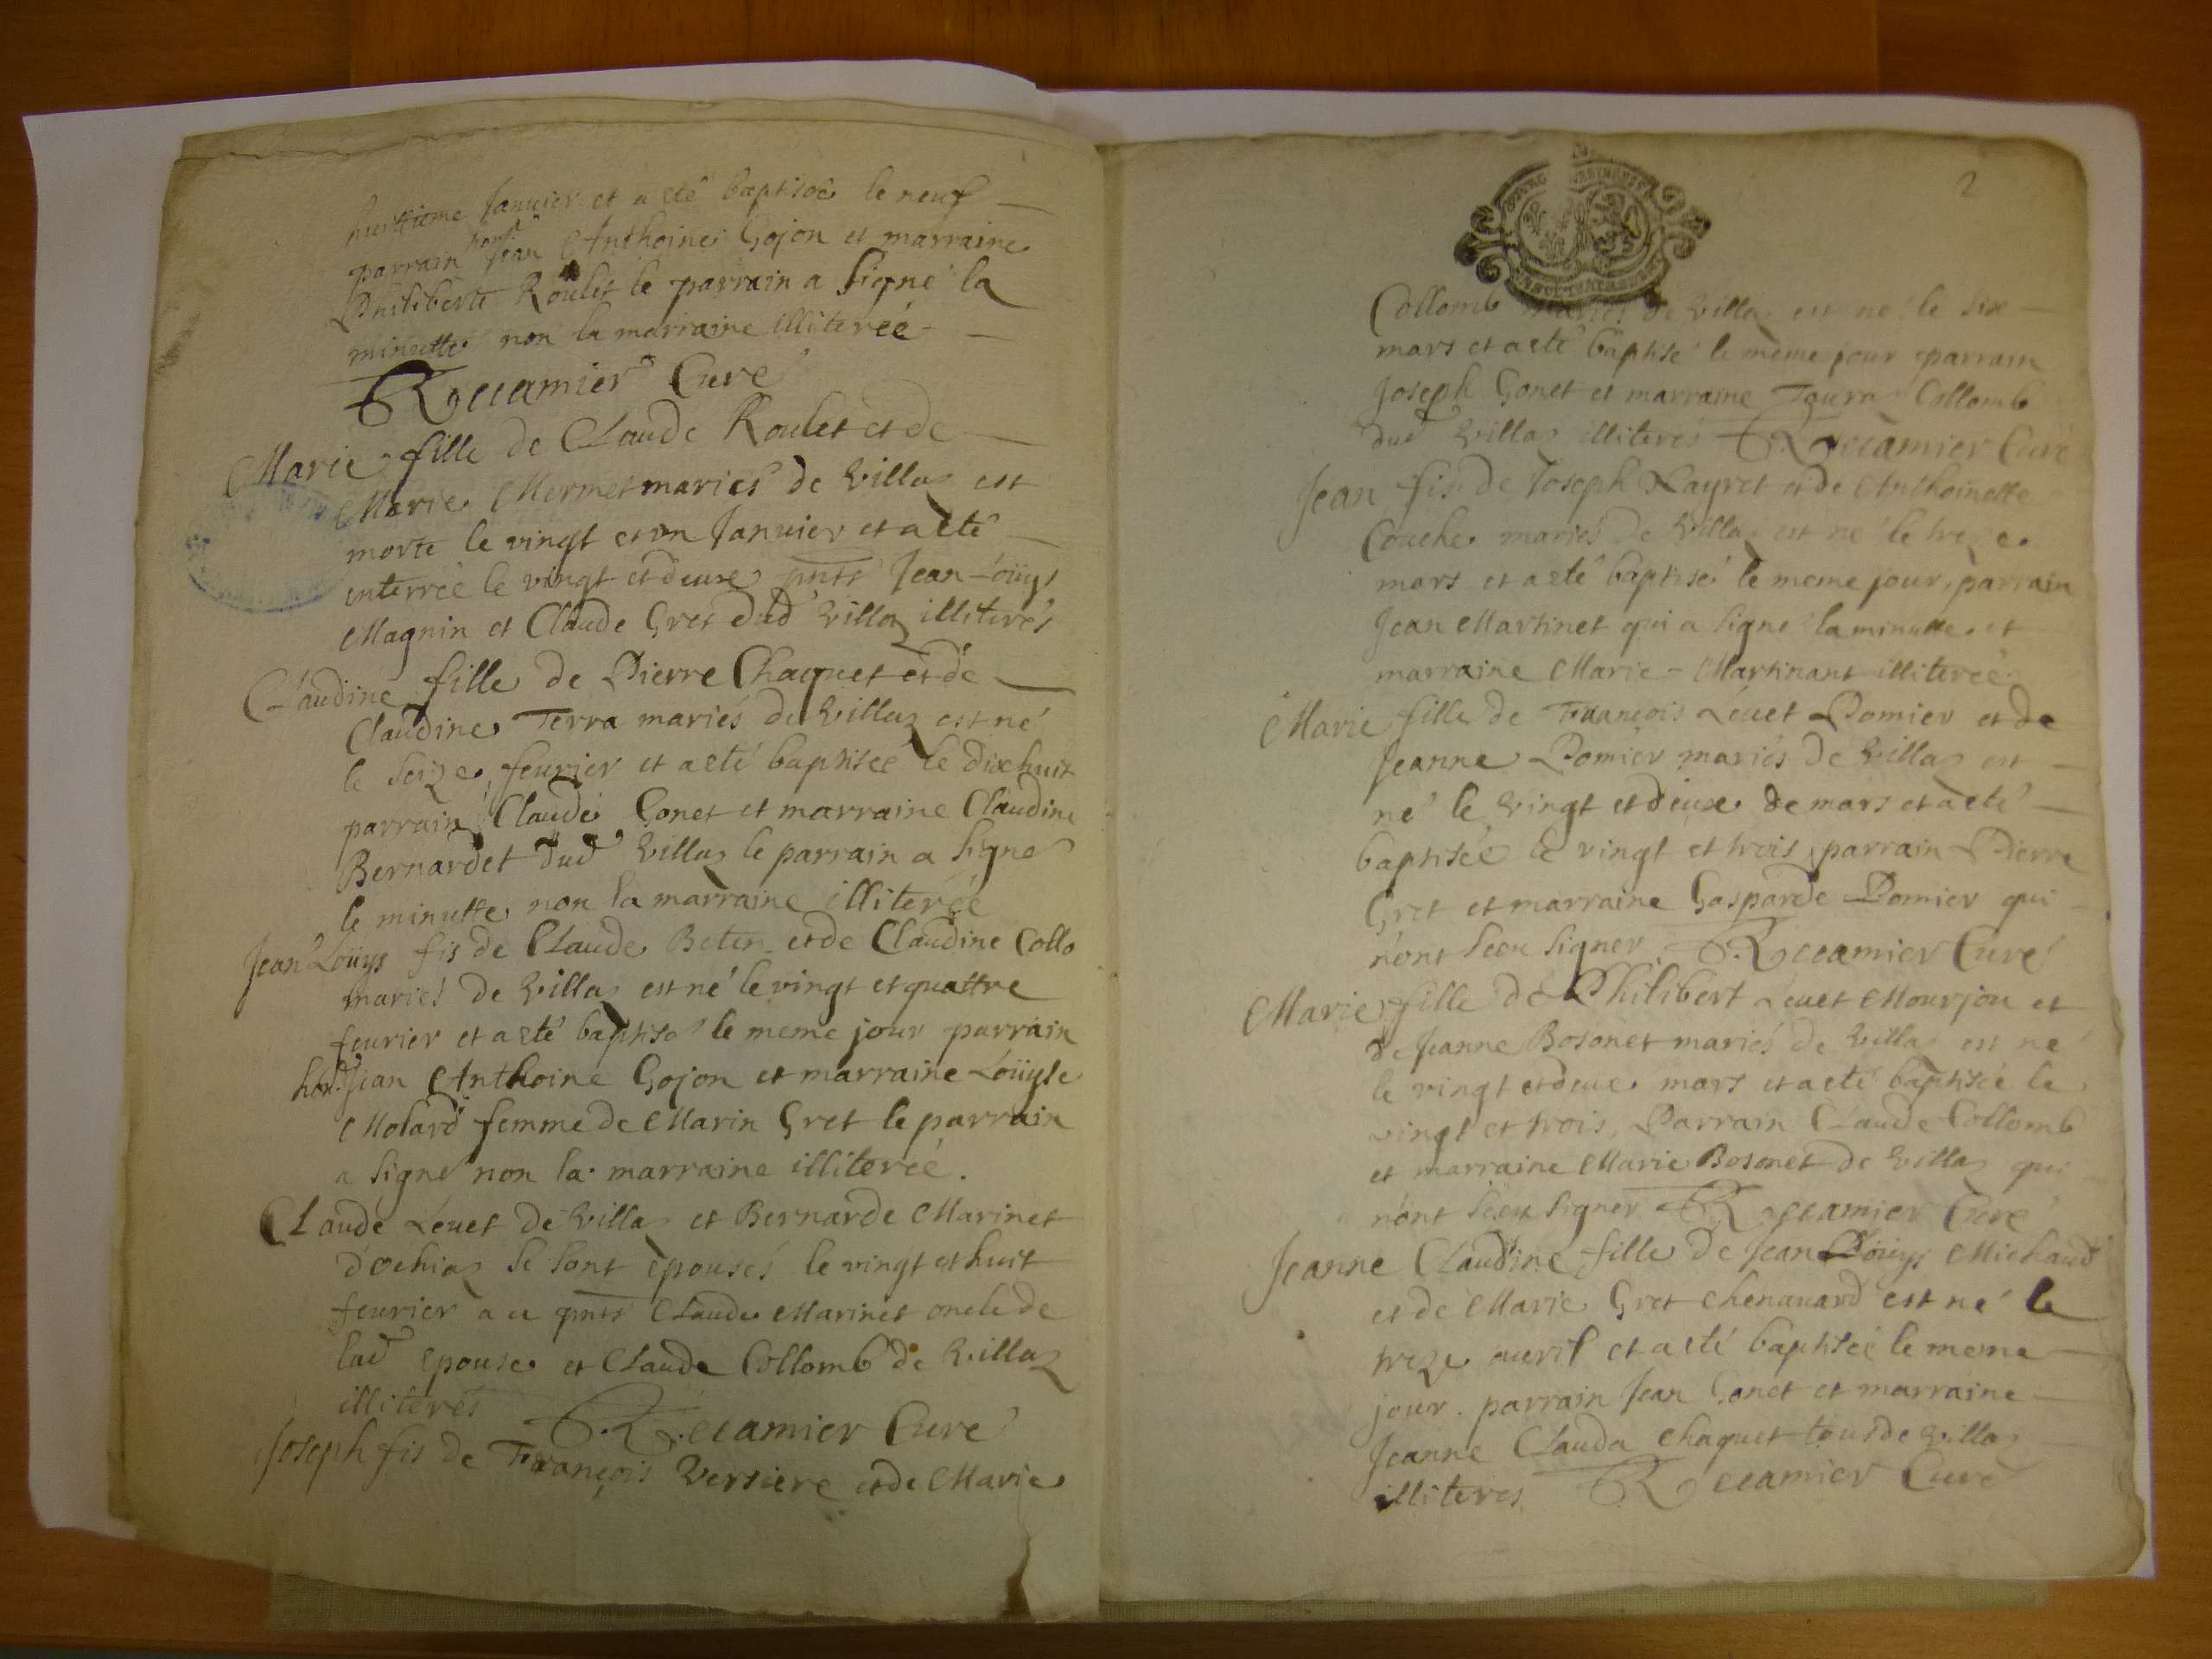 huittieme Januier et a eté baptiseé le neuf
parrain hon.^e Jean Anthoine Gojon et marraine
Philiberte Roulet le parrain a signé la
minutte non la marraine illitereé
Recamier Curé
Marie fille de Claude Roulet et de
Marie Mermet mariés de Villaz est
morte le vingt et un Januier et a eté
enterrée le vingt et deux pnts Jean-Loüys
Magnin et Claude Gret dud Villaz illiterés
Claudine fille de Pierre Chaquet et de
Claudine Terra mariés de Villaz est né
le seize feurier et a eté baptisée le dixhuit
parrain Claude Gonet et marraine Claudine
Bernardet dud Villaz le parrain a signé
le minutte non la marraine illitereé
Jean Loüys fis de Claude Beten et de Claudine Collo
mariés de Villaz est né le vingt et quattre
feurier et a eté baptisé le meme jour parrain
hon.^e Jean Anthoine Gojon et marraine Loüyse
Molard femme de Marin Gret le parrain
a signé non la marraine illitereé.
Claude Leuet de Villaz et Bernarde Marinet
d'ochiaz se sont epousés le vingt et huit
feurier a ce pnts Claude Marinet oncle de
lad epouse et Claude Collomb de Villaz
illiterés Recamier Curé
Joseph fis de François Versiere et de Marie
2
Collomb mariés de Villaz est né le six
mars et a eté baptisé le même jour parrain
Joseph Gonet et marraine Collomb
dud Villaz illiterés Recamier Curé
Jean fis de Joseph Nayret et de Anthoinette
Couche mariés de Villaz est né le treze
mars et a eté baptisé le meme jour, parrain
Jean Martinet qui a signé la minutte et
marraine Marie-Martinant illitereé
Marie fille de François Leuet Pomier et de
Jeanne Pomier mariés de Villaz est
né le vingt et deux de mars et a eté
baptisée le vingt et trois parrain Pierre
Gret et marraine Gasparde Pomier qui
n'ont sceu signer Recamier Curé
Marie fille de Philibert Leuet Mourjon et
de Jeanne Bosonet mariés de Villaz est né
le vingt et deux mars et a eté baptisée le
vingt et trois, Parrain Claude Collomb
et marraine Marie Bosonet de Villaz qui
n'ont sceu signer Recamier Curé
Jeanne Claudine fille de Jean Loüys Michaud
et de Marie Gret Chenauard est né le
treze auril et a eté baptisée le meme
jour. parrain Jean Gonet et marraine
Jeanne Clauda Chaquet tous de Villaz
illiteres Recamier Curé